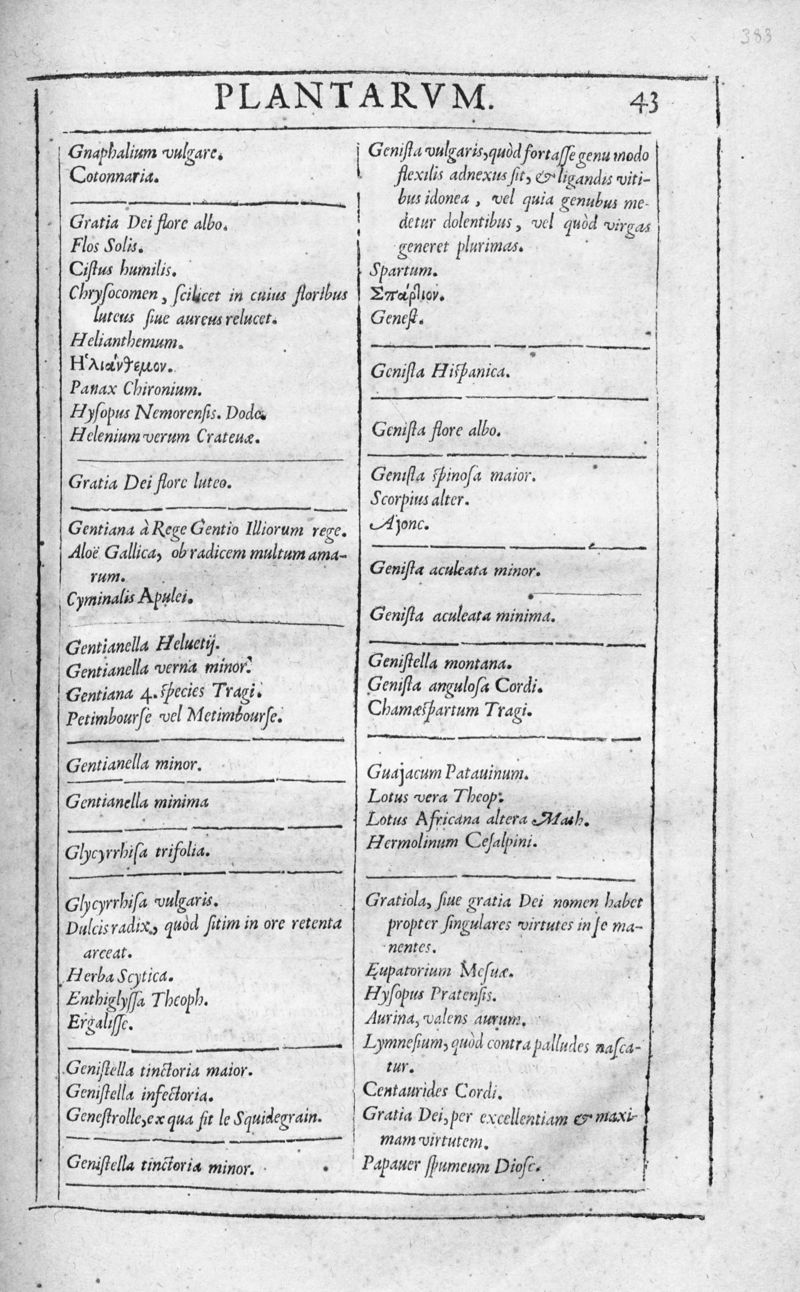 383
PLANTARVM.
43
Gnaphalium vulgare.
Cotonnaria.
Gratia Dei flore albo.
Flos Solis.
Ciſtus humilis.
Chryſocomen, ſcilicet in cuius floribus
luteus ſiue aureus relucet.
Helianthemum.
Ηλιάνθεμον.
Panax Chironium.
Hyſopus Nemorenſis. Dodo.
Helenium verum Crateuæ.
Gratia Dei flore luteo.
Gentiana à Rege Gentio Illiorum rege.
Aloë Gallica, ob radicem multum ama-
rum.
Cyminalis Apulei.
Gentianella Heluetij.
Gentianella verna minor.
Gentiana 4. ſpecies Tragi.
Petimbourſe vel Metimbourſe.
Gentianella minor.
Gentianella minima
Glycyrrhiſa trifolia.
Glycyrrhiſa vulgaris.
Dulcis radix, quòd ſitim in ore retenta
arceat.
Herba Scytica.
Enthiglyſſa Theoph.
Ergaliſſe.
Geniſtella tinctoria maior.
Geniſtella infectoria.
Geneſtrolle, ex qua fit le Squidegrain.
Geniſtella tinctoria minor.
Geniſta vulgaris, quòd fortaſſe genu modo
flexilis adnexus ſit, & ligandis viti-
bus idonea, vel quia genubus me-
detur dolentibus, vel quòd virgas
generet plurimas.
Spartum.
Σπάρτιον.
Geneſt.
Geniſta Hiſpanica.
Geniſta flore albo.
Geniſta ſpinoſa maior.
Scorpius alter.
Ajonc.
Geniſta aculeata minor.
Geniſta aculeata minima.
Geniſtella montana.
Geniſta anguloſa Cordi.
Chamæſpartum Tragi.
Guajacum Patauinum.
Lotus vera Theop.
Lotus Africana altera Math.
Hermolinum Ceſalpini.
Gratiola, ſiue gratia Dei nomen habet
propter ſingulares virtutes in ſe ma-
nentes.
Eupatorium Meſuæ.
Hyſopus Pratenſis.
Aurina, valens aurum.
Lymneſium, quòd contra palludes naſca-
tur.
Centaurides Cordi.
Gratia Dei, per excellentiam & maxi-
mam virtutem.
Papauer ſpumeum Dioſc.